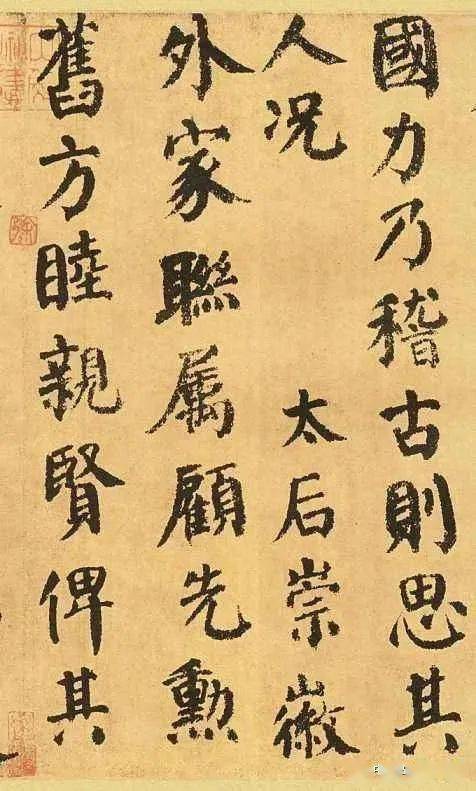 國力乃稽古則思其
人況 太后崇徽
外家聯属顧先勲
舊方睦親賢俾其